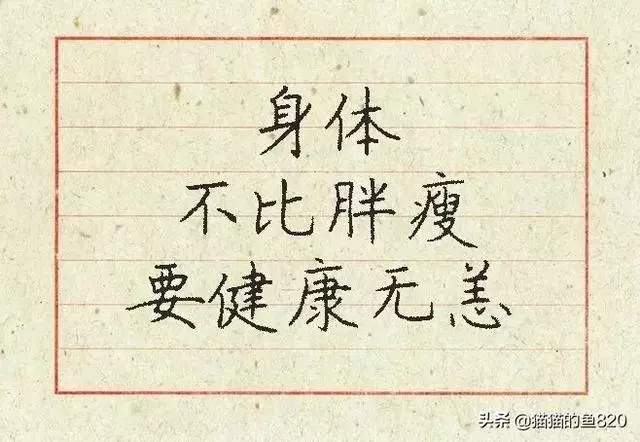 身体
不比胖瘦
要健康无恙
头条 @猫猫的鱼820